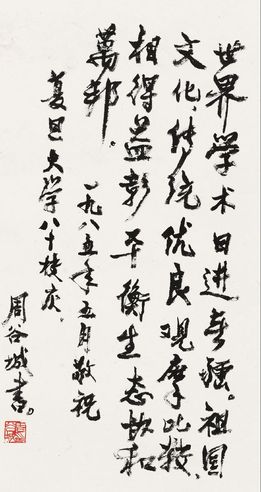 世界学术日进无疆。祖国
文化，传统优良观摩比较，
相得益彰平衡生态协和
萬邦。
一九八五年五月敬祝
复旦大学八十校庆。
周谷城书。